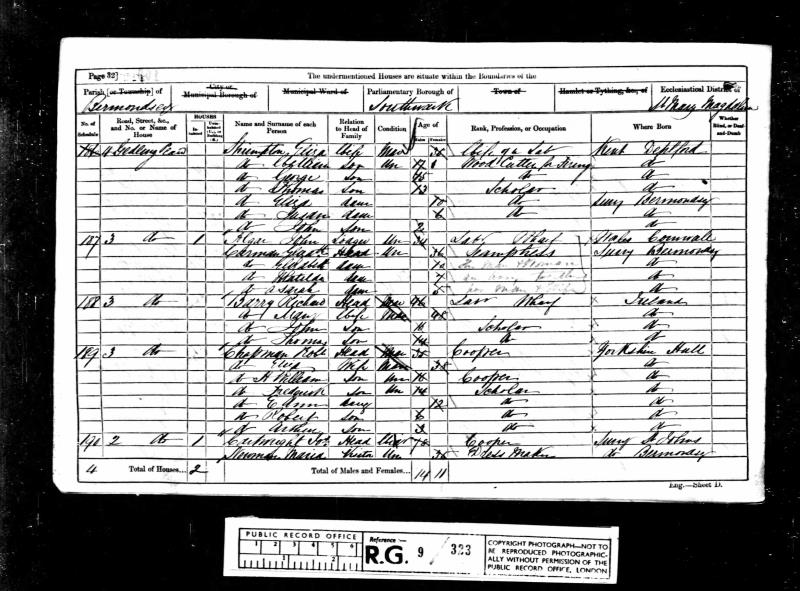 Page 32]
The undermentioned Houses are situate within the Boundaries of the
Parish [or Township] of
City or Municipal Borough of
Municipal Ward of
Parliamentary Borough of
Town of
Hamlet or Tything, &c., of
Ecclesiastical District of
Bermondsey
Southwark
St Mary Magdalen
No. of Schedule
Road, Street, &c., and No. or Name of House
HOUSES
Name and Surname of each Person
Relation to Head of Family
Condition
Age of
Males
Females
Rank, Profession, or Occupation
Where Born
Whether Blind, or Deaf-and-Dumb
Shrumpton Eliza Wife Mar 38 Kent Deptford
do William Son Un 17 Wood Cutter
do George Son 15 do do
do Thomas Son 13 Scholar do
do Eliza daur 10 do Surry Bermondsey
do Susan daur 6 do do
do John Son 2 do
187 3 do 1 John Lodger Un 34 Wharf Cornwall
Head Un 36 Surry Bermondsey
do daur do
do Matilda daur do
do Sarah daur do
188 3 do Barry Richard Head Mar 46 Labr Wharf Ireland
do Mary Wife 48 do
do John Son 11 Scholar do
do Thomas Son 14 do do
189 3 do Chapman Robt Head Mar 38 Cooper Yorkshire Hull
do Eliza Wife Mar 38 do
do H William Son Un 16 Cooper do
do Frederick Son Un 14 Scholar do
do Emm daug 12 do do
do Robert Son 6 do do
do Arthur Son 3 do do
190 2 do 1 Cartwright Head Cooper Surry St Johns
Newman Maria Visitor Un 38 Dress Maker do Bermondsey
4 Total of Houses... 2 Total of Males and Females... 14 11
Eng.—Sheet D.
PUBLIC RECORD OFFICE
1 2 3 4 5 6
1 2
Reference :-
R.G. 9 / 323
COPYRIGHT PHOTOGRAPH—NOT TO
BE REPRODUCED PHOTOGRAPHIC-
ALLY WITHOUT PERMISSION OF THE
PUBLIC RECORD OFFICE, LONDON